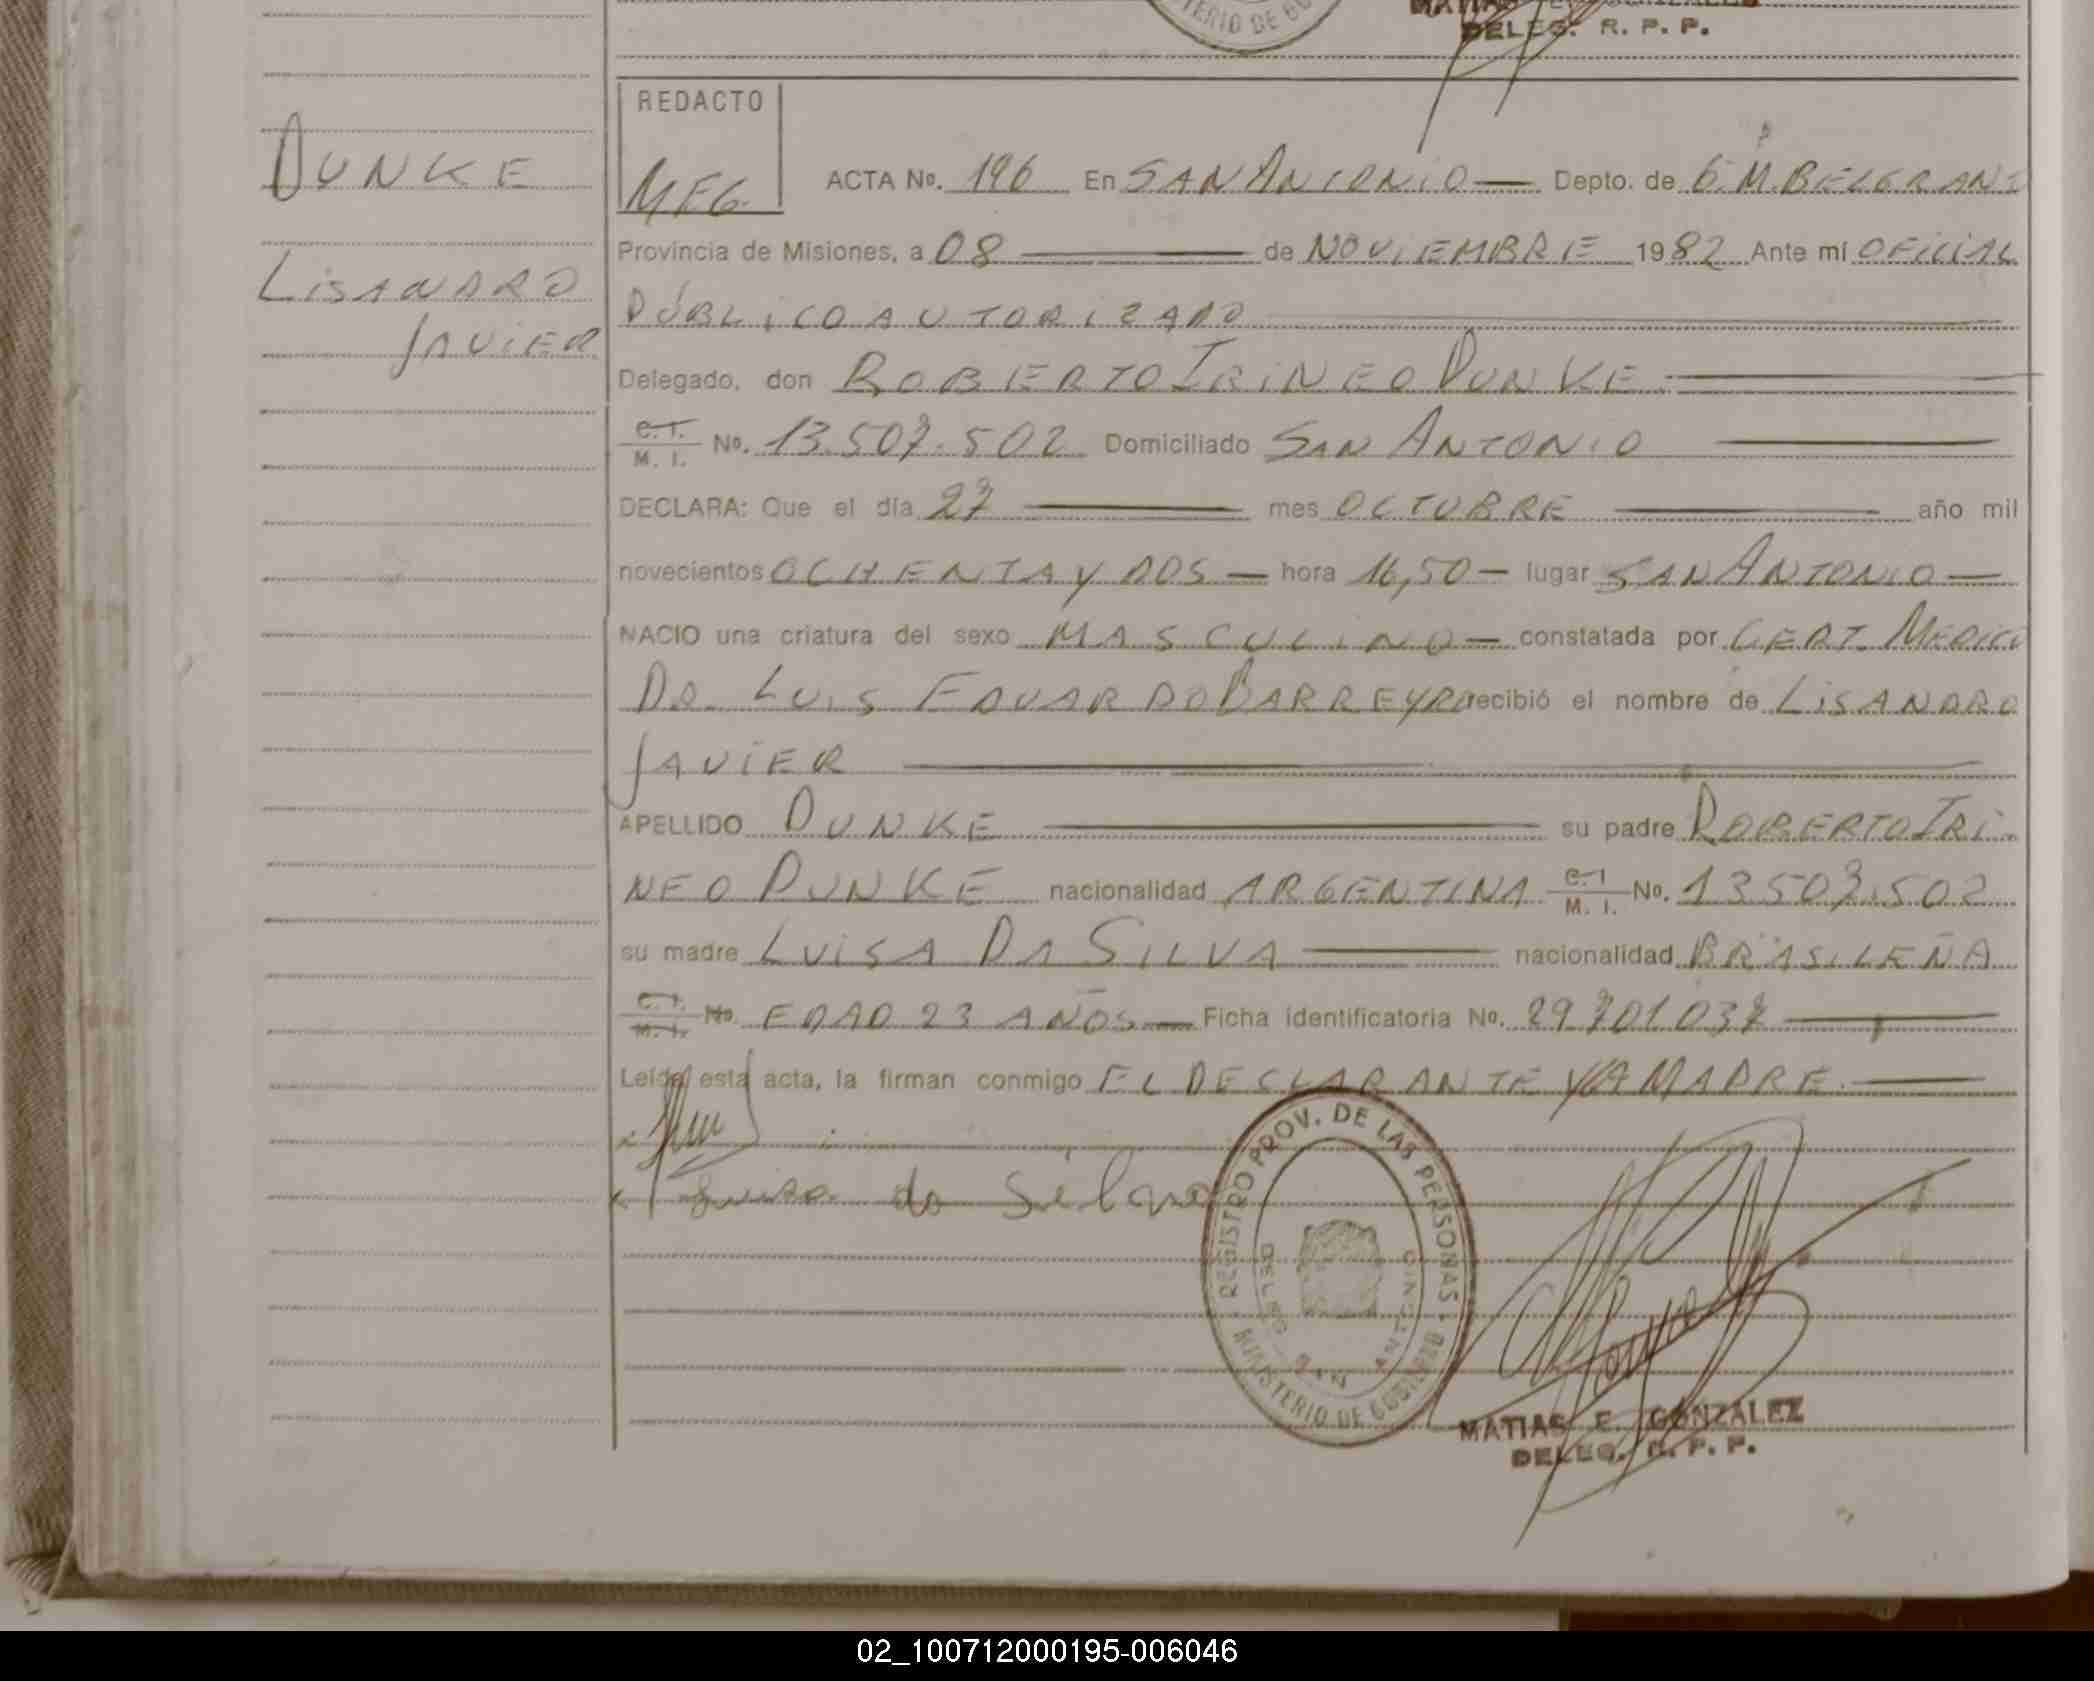 TERIO DE GO
MATIAS E. GONZALEZ
DELEG. R. P. P.
REDACTO
MEG.
DUNKE
LISANDRO
JAVIER
ACTA No. 196 En SAN ANTONIO — Depto. de G. M. BELGRANO
Provincia de Misiones, a 08 — de NOVIEMBRE 1982 Ante mí OFICIAL
PÚBLICO AUTORIZADO
Delegado, don ROBERTO IRINEO DUNKE.
C. I. M. I. No. 13.507.502 Domiciliado SAN ANTONIO
DECLARA: Que el día 27 — mes OCTUBRE — año mil
novecientos OCHENTA Y DOS — hora 16,50 — lugar SAN ANTONIO —
NACIO una criatura del sexo MASCULINO — constatada por CERT. MEDICO
DR. LUIS EDUARDO BARREYRO recibió el nombre de LISANDRO
JAVIER
APELLIDO DUNKE — su padre ROBERTO IRI
NEO DUNKE nacionalidad ARGENTINA C. I. M. I. No. 13507.502
su madre LUISA DA SILVA — nacionalidad BRASILEÑA
C. I. M. I. No. EDAD 23 AÑOS — Ficha identificatoria No. 29701037 —
Leída esta acta, la firman conmigo EL DECLARANTE Y LA MADRE. —
Luisa da Silva
REGISTRO PROV. DE LAS PERSONAS
MINISTERIO DE GOBIERNO
DELEG. SAN ANTONIO
MATIAS E. GONZALEZ
DELEG. R. P. P.
02_100712000195-006046